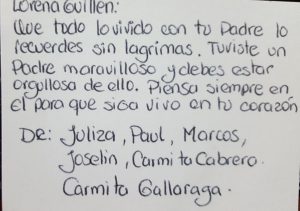 Lorena Guillen:
Que todo lo vivido con tu Padre lo
recuerdes sin lagrimas. Tuviste un
Padre maravilloso y debes estar
orgullosa de ello. Piensa siempre en
el para que siga vivo en tu corazón
De: Juliza, Paul, Marcos,
Joselin, Carmita Cabrero.
Carmita Gallaraga.